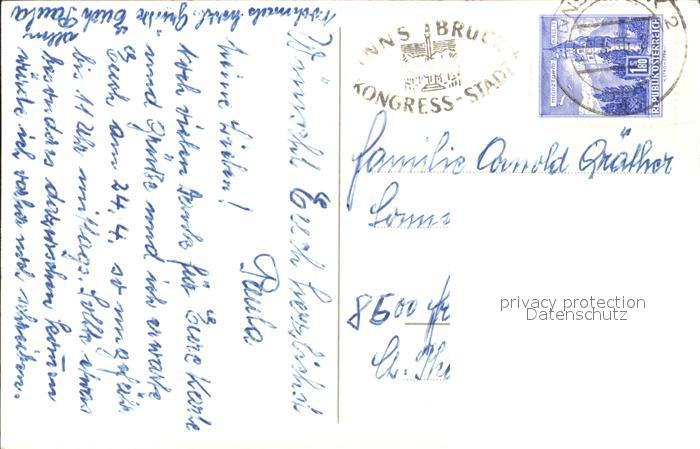 Wünscht Euch herzlichst
Paula
Meine Lieben!
Noch vielen Dank für Eure Karte
und Grüße und ich erwarte
Euch am 24.4. so ungefähr
bis 11 Uhr mittags. Sollte etwas
besonders dazwischen kommen
würde ich vorher noch schreiben.
Nochmals herzl. Grüße Euch allen
Paula
INNSBRUCK
KONGRESS-STADT
1S
1.80
REPUBLIK ÖSTERREICH
Familie Arnold Gräther
Sonn
8500
privacy protection
Datenschutz